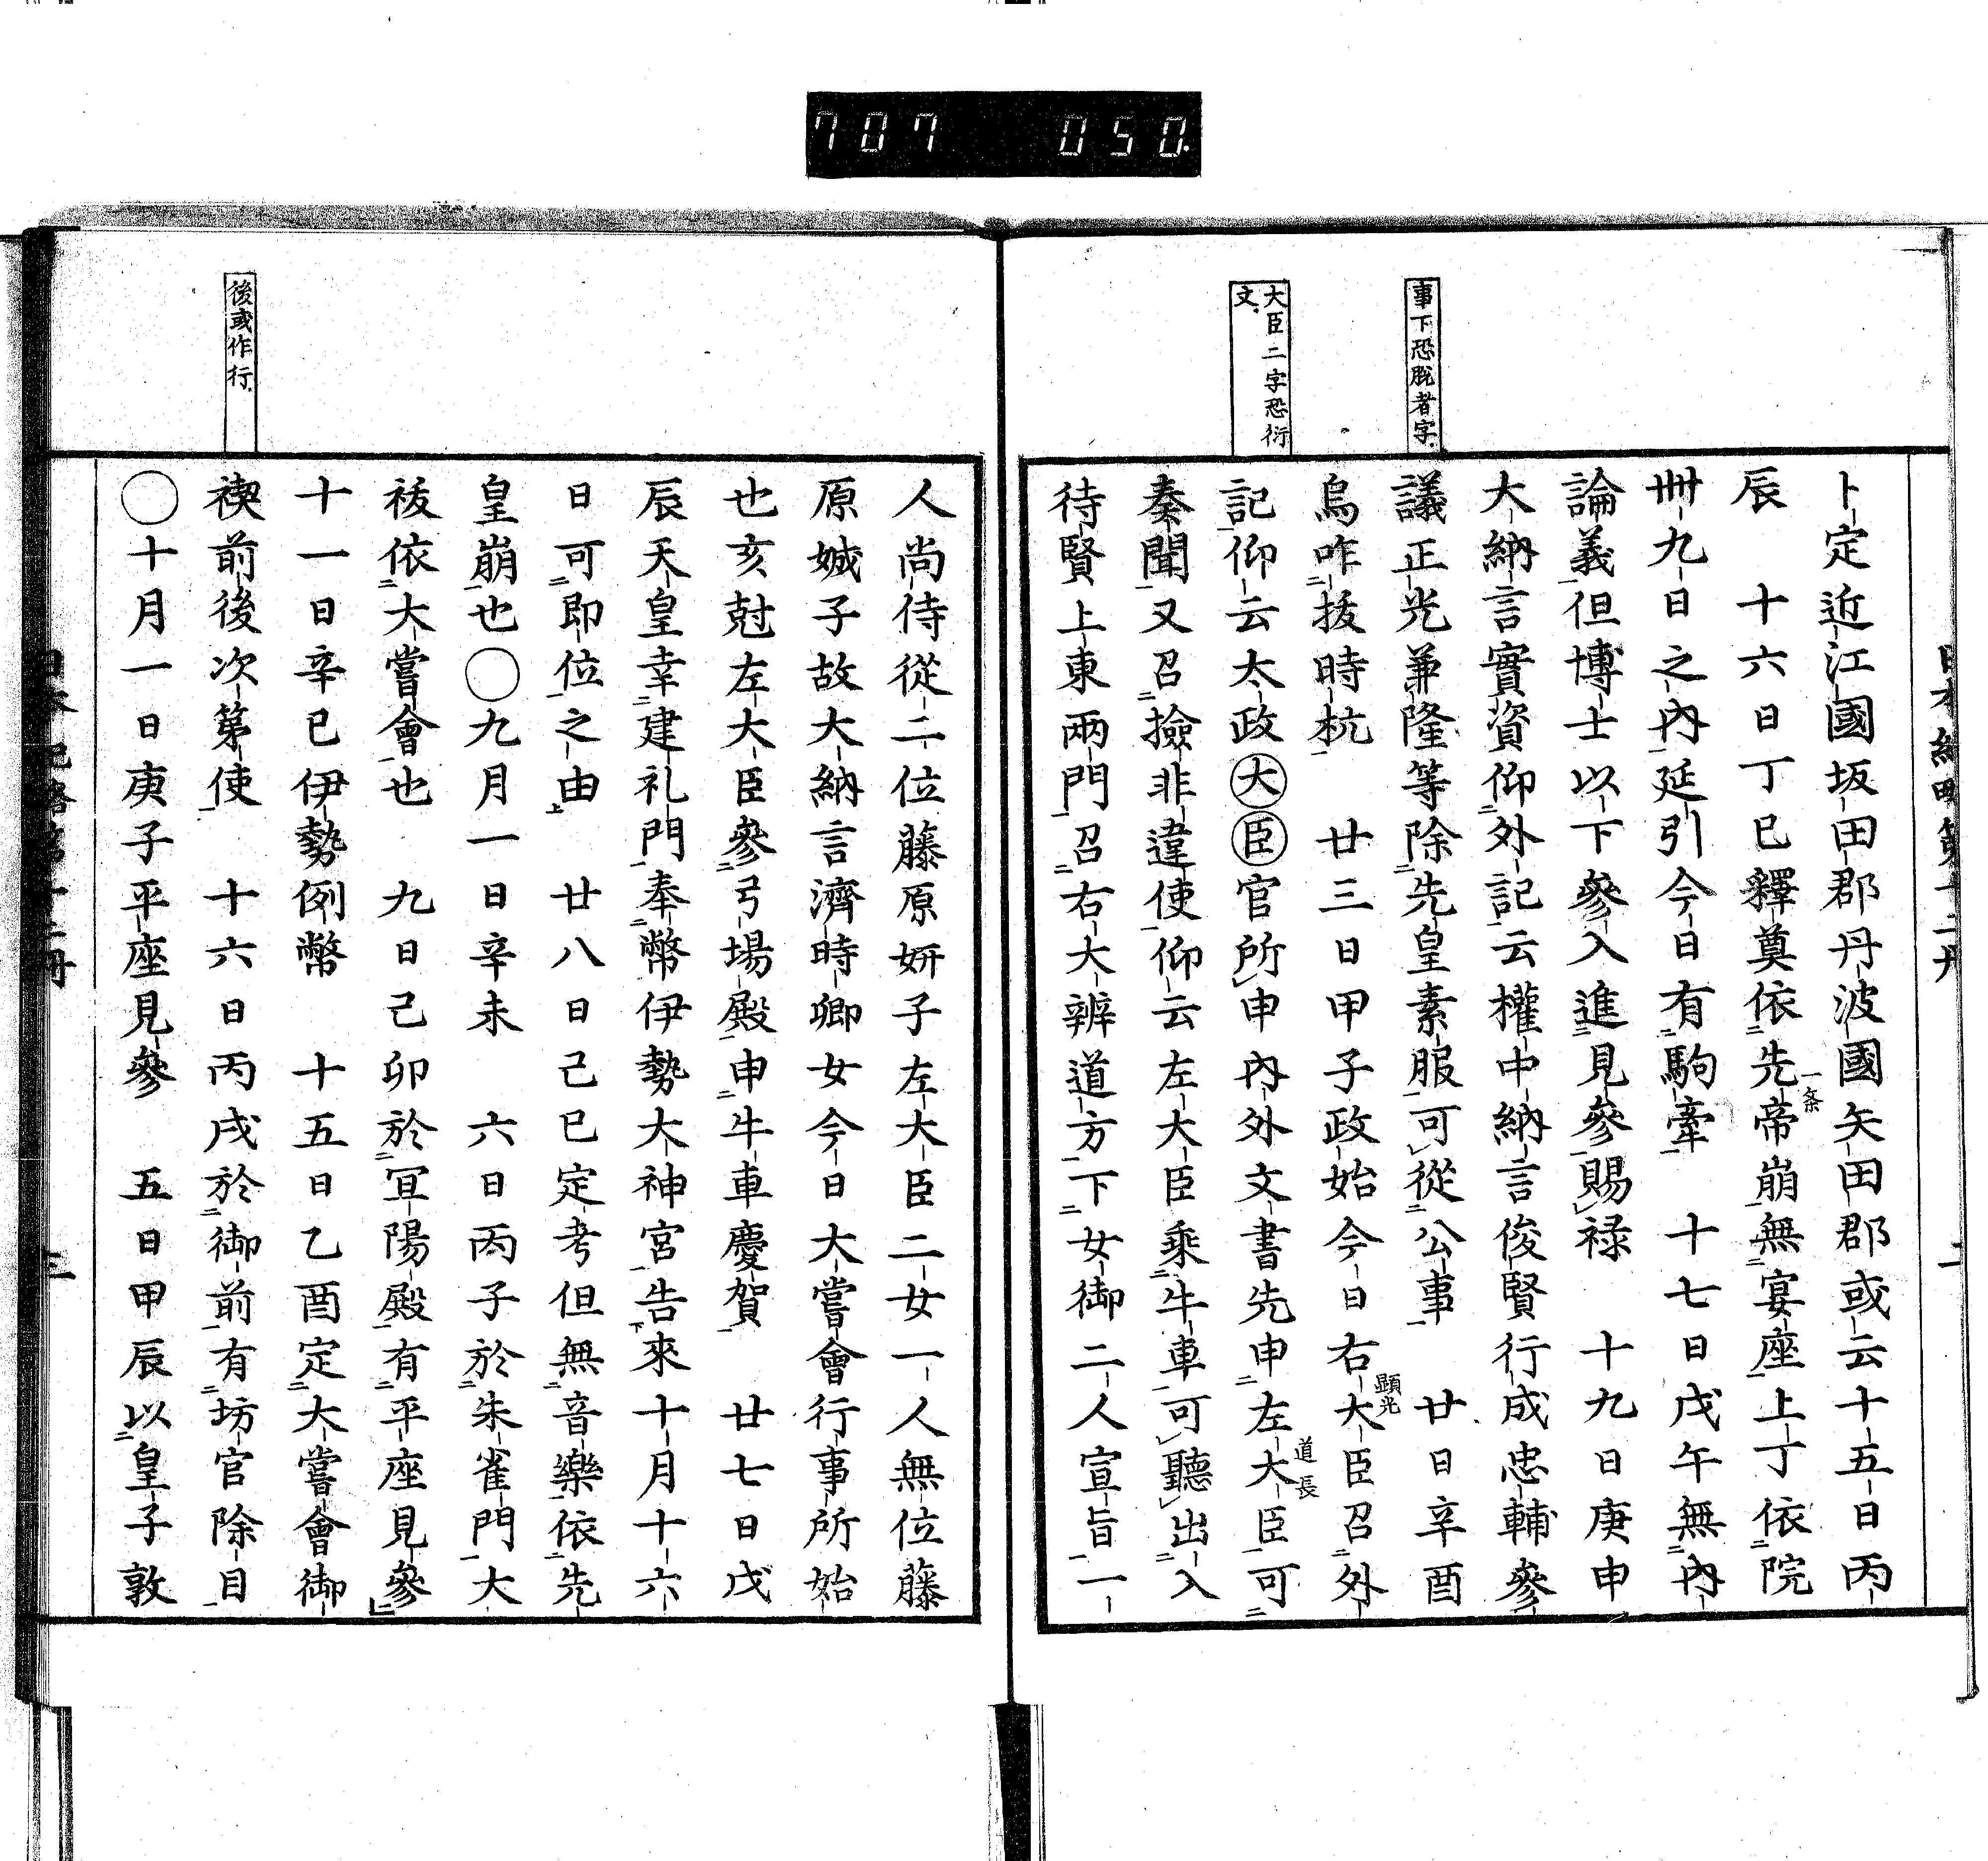 707 050
事下恐脱者字
大臣二字恐衍
文
卜定近江國坂田郡丹波國矢田郡或云十五日丙
辰　十六日丁巳釋奠依先帝崩無宴座上丁依院
一条
卌九日之內延引今日有駒牽　十七日戊午無內
論義但博士以下參入進見參賜禄　十九日庚申
大納言實資仰外記云權中納言俊賢行成忠輔參
議正光兼隆等除先皇素服可從公事　廿日辛酉
烏咋拔時杭　廿三日甲子政始今日右大臣召外
顯光
記仰云太政大臣官所申內外文書先申左大臣可
道長
奏聞又召撿非違使仰云左大臣乘牛車可聽出入
待賢上東兩門召右大辨道方下女御二人宣旨一
後或作行
人尚侍從二位藤原妍子左大臣二女一人無位藤
原娍子故大納言濟時卿女今日大嘗會行事所始
也亥尅左大臣參弓場殿申牛車慶賀　廿七日戊
辰天皇幸建礼門奉幣伊勢大神宮告來十月十六
日可即位之由　廿八日己巳定考但無音樂依先
皇崩也◯九月一日辛未　六日丙子於朱雀門大
祓依大嘗會也　九日己卯於冝陽殿有平座見參
十一日辛巳伊勢例幣　十五日乙酉定大嘗會御
禊前後次第使　十六日丙戌於御前有坊官除目
◯十月一日庚子平座見參　五日甲辰以皇子敦
三